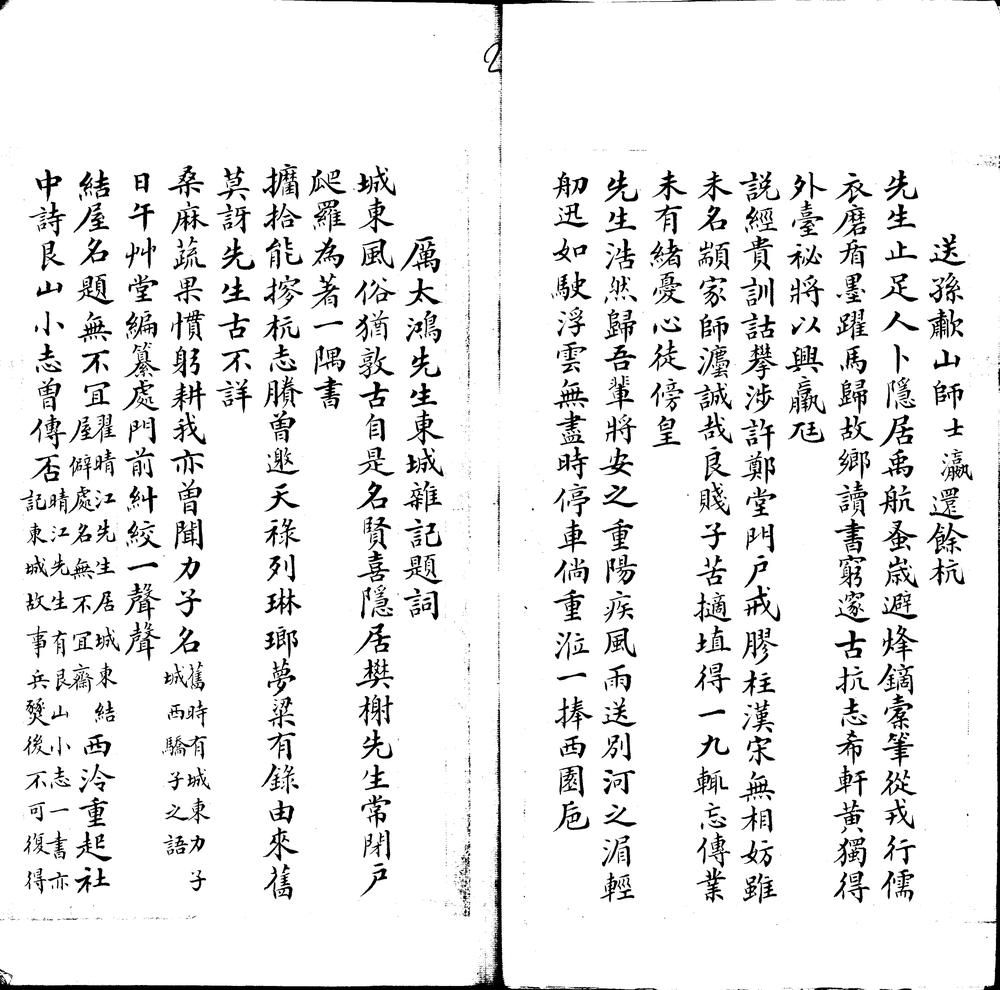 送孫歗山師士瀛還餘杭
先生止足人卜隱居禹航蚤歲避烽鏑橐筆從戎行儒
衣磨盾墨躍馬歸故鄉讀書窮邃古抗志希軒黃獨得
外臺祕將以興羸尫
說經貴訓詁攀涉許鄭堂門戶戒膠柱漢宋無相妨雖
未名顓家師灋誠哉良賤子苦擿埴得一九輒忘傳業
未有緒憂心徒傍皇
先生浩然歸吾輩將安之重陽疾風雨送別河之湄輕
舠迅如駛浮雲無盡時停車倘重涖一捧西園卮
厲太鴻先生東城雜記題詞
城東風俗猶敦古自是名賢喜隱居樊榭先生常閉戶
爬羅為著一隅書
攟拾能摎杭志賸曾邀天祿列琳瑯夢粱有錄由來舊
莫訝先生古不詳
桑麻蔬果慣躬耕我亦曾聞力子名舊時有城東力子城西驕子之語
日午艸堂編纂處門前糾絞一聲聲
結屋名題無不冝翟晴江先生居城東結屋僻處名無不冝齋西泠重起社
中詩艮山小志曾傳否晴江先生有艮山小志一書亦記東城故事兵燹後不可復得